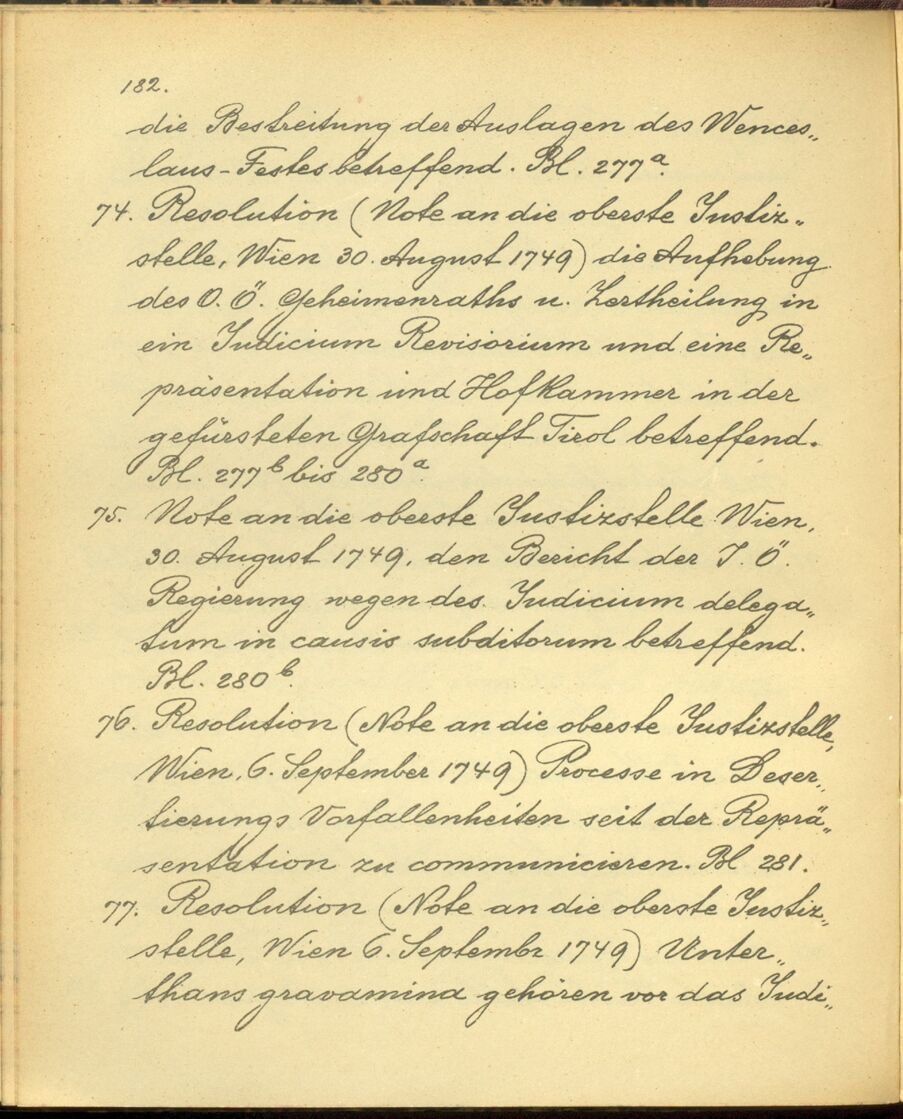 182.
die Bestreitung der Auslagen des Wences„
laus-Festes betreffend. Bl. 277ª.
74. Resolution (Note an die oberste Justiz„
stelle, Wien 30. August 1749) die Aufhebung
des O. Ö. Geheimenraths u. Zertheilung in
ein Judicium Revisorium und eine Re„
präsentation und Hofkammer in der
gefürsteten Grafschaft Tirol betreffend.
Bl. 277ᵇ bis 280ª.
75. Note an die oberste Justizstelle Wien,
30. August 1749, den Bericht der I. Ö.
Regierung wegen des Judicium delega„
tum in causis subditorum betreffend.
Bl. 280ᵇ.
76. Resolution (Note an die oberste Justizstelle,
Wien, 6. September 1749) Processe in Deser„
tierungs Vorfallenheiten seit der Reprä„
sentation zu communicieren. Bl 281.
77. Resolution (Note an die oberste Justiz„
stelle, Wien 6. Septembr 1749) Unter„
thans gravamina gehören vor das Judi„